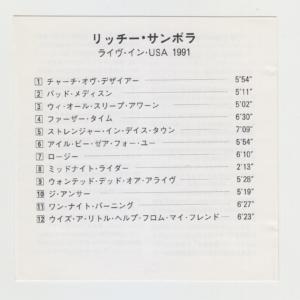 リッチー・サンボラ
ライヴ・イン・USA 1991
1 チャーチ・オヴ・デザイアー 5'54"
2 バッド・メディスン 5'11"
3 ウィ・オール・スリープ・アワーン 5'02"
4 ファーザー・タイム 6'30"
5 ストレンジャー・イン・デイス・タウン 7'09"
6 アイル・ビー・ゼア・フォー・ユー 5'54"
7 ロージー 6'10"
8 ミッドナイト・ライダー 2'13"
9 ウォンテッド・デッド・オア・アライヴ 5'28"
10 ジ・アンサー 5'19"
11 ワン・ナイト・バーニング 6'27"
12 ウイズ・ア・リトル・ヘルプ・フロム・マイ・フレンド 6'23"